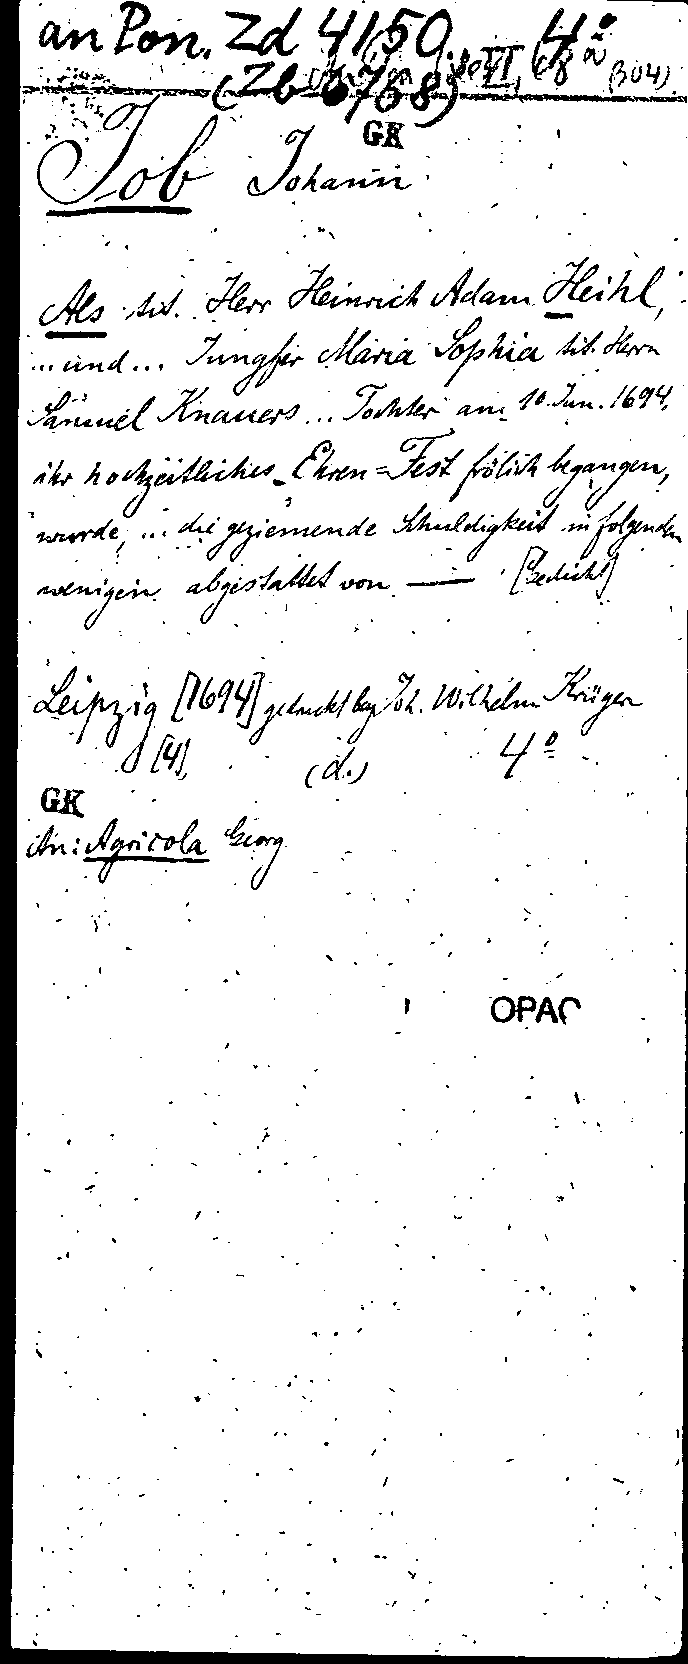 an Pon. Zd 4150, 4º
(Zb 6768) VI, (304)
GK
Job Johann
Als tit. Herr Heinrich Adam Heihl,
... und ... Jungfer Maria Sophia tit. Herrn
Samuel Knauers ... Tochter am 10. Jun. 1694.
ihr hochzeitliches Ehren=Fest frölich begangen,
wurde, ... die geziemende Schuldigkeit in folgenden
wenigen abgestattet von —— [Gedicht]
Leipzig [1694] gedruckt bey Joh. Wilhelm Krügern
[4], (d.) 4º
GK
An: Agricola Georg
OPAC